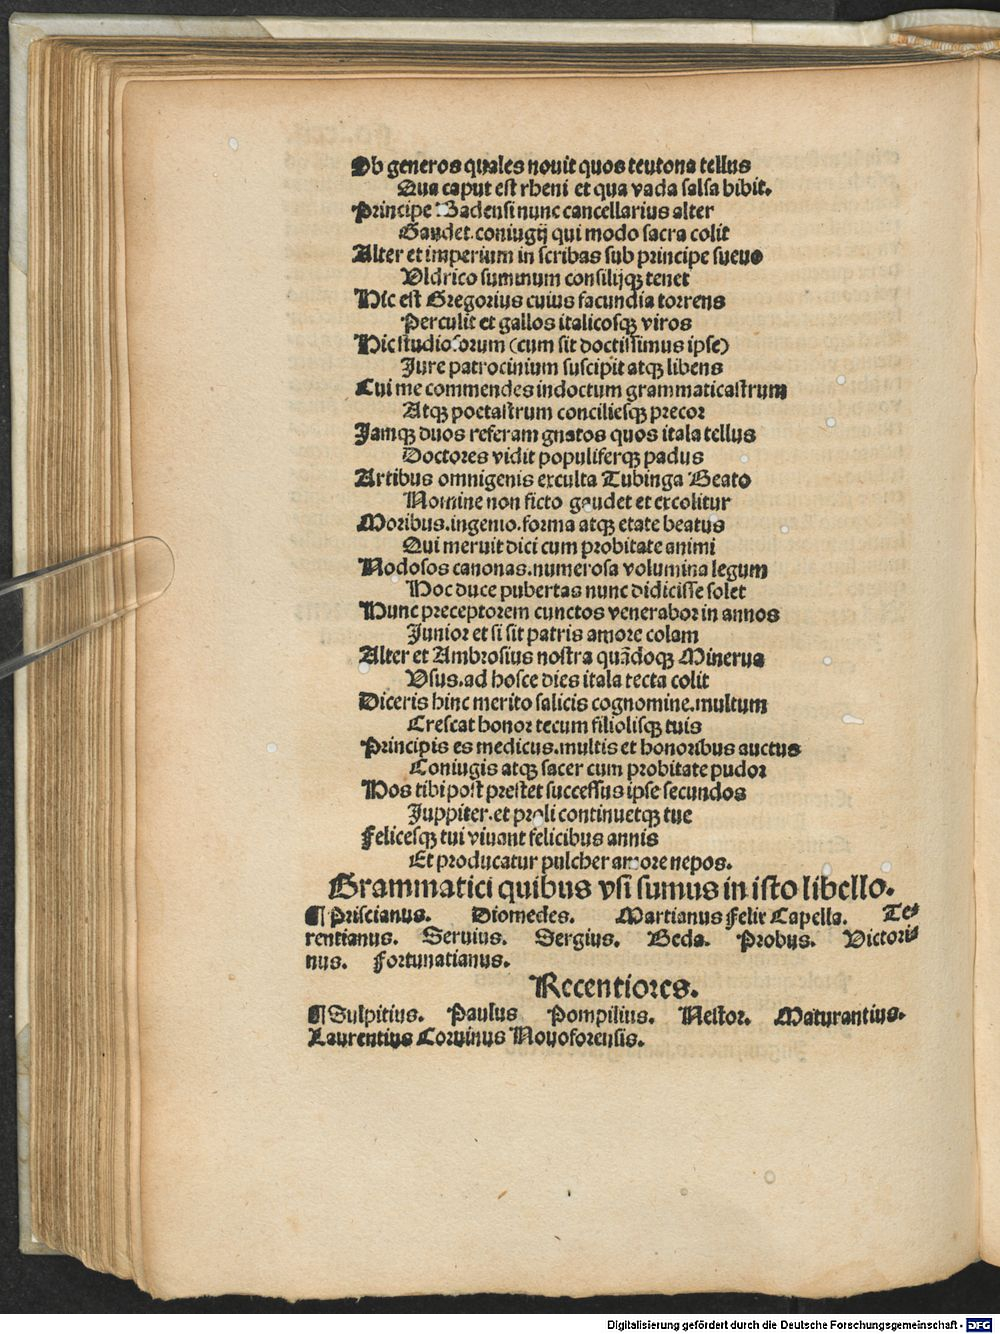 Ob generos quales nouit quos teutona tellus
Qua caput est rheni et qua vada salsa bibit.
Principe Badensi nunc cancellarius alter
Gaudet.coniugij qui modo sacra colit
Alter et imperium in scribas sub principe sueuo
Vldrico summum consilijqꝫ tenet
Hic est Gregorius cuius facundia torrens
Perculit et gallos italicosqꝫ viros
Hic studiosorum (cum sit doctissimus ipse)
Jure patrocinium suscipit atqꝫ libens
Cui me commendes indoctum grammaticastrum
Atqꝫ poetastrum conciliesqꝫ precor
Jamqꝫ duos referam gnatos quos itala tellus
Doctores vidit populiferqꝫ padus
Artibus omnigenis exculta Tubinga Beato
Nomine non ficto gaudet et excolitur
Moribus.ingenio.forma atqꝫ etate beatus
Qui meruit dici cum probitate animi
Nodosos canonas.numerosa volumina legum
Hoc duce pubertas nunc didicisse solet
Hunc preceptorem cunctos venerabor in annos
Junior et si sit patris amore colam
Alter et Ambrosius nostra quādoqꝫ Minerua
Vsus.ad hosce dies itala tecta colit
Diceris hinc merito salicis cognomine.multum
Crescat honor tecum filiolisqꝫ tuis
Principis es medicus.multis et honoribus auctus
Coniugis atqꝫ sacer cum probitate pudor
Hos tibi post prestet successus ipse secundos
Juppiter.et proli continuetqꝫ tue
Felicesqꝫ tui viuant felicibus annis
Et producatur pulcher amore nepos.
Grammatici quibus vsi sumus in isto libello.
¶ Priscianus. Diomedes. Martianus Felix Capella. Te-
rentianus. Seruius. Sergius. Beda. Probus. Victori-
nus. Fortunatianus.
Recentiores.
¶ Sulpitius. Paulus Pompilius. Nestor. Maturantius.
Laurentius Coruinus Nouoforensis.
Digitalisierung gefördert durch die Deutsche Forschungsgemeinschaft - DFG